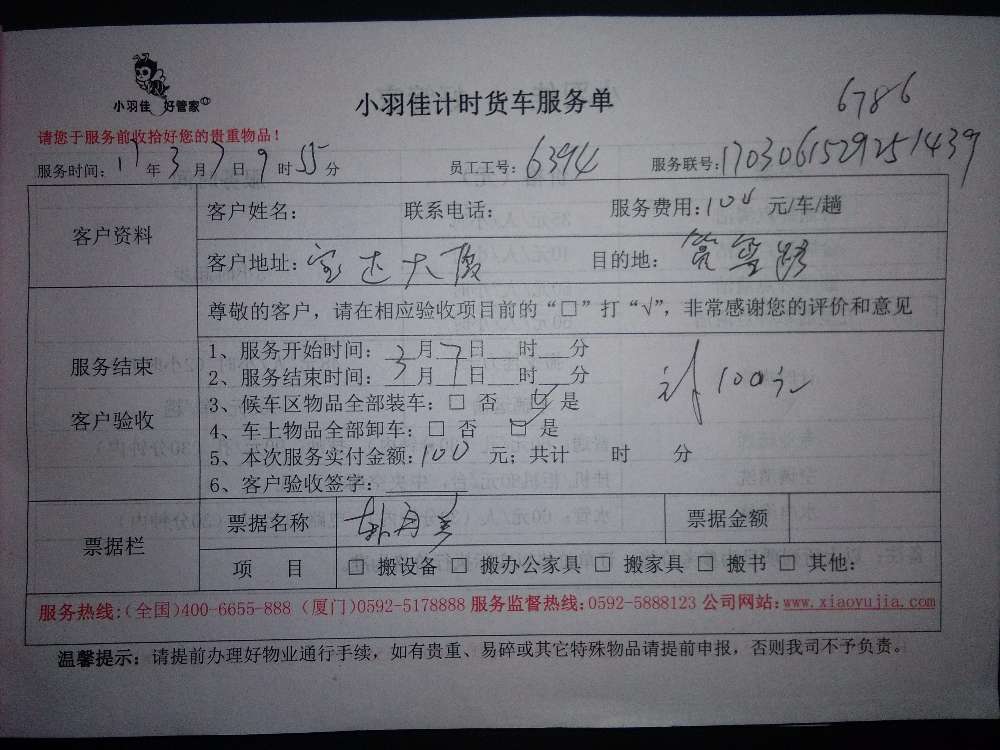 小羽佳 好管家
小羽佳计时货车服务单
6786
请您于服务前收拾好您的贵重物品！
服务时间：17年3月7日9时55分 员工工号：6394 服务联号：1703061529251439
客户资料
客户姓名： 联系电话： 服务费用：100 元/车/趟
客户地址：宝达大厦 目的地：莺雪路
服务结束
客户验收
尊敬的客户，请在相应验收项目前的“□”打“√”，非常感谢您的评价和意见
1、服务开始时间：3月7日 时 分
2、服务结束时间：3月7日 时 分
3、候车区物品全部装车：□ 否 ☑ 是
4、车上物品全部卸车：□ 否 □ 是
5、本次服务实付金额：100 元；共计 时 分
6、客户验收签字：
计100元
票据栏
票据名称 票据金额
项 目 □ 搬设备 □ 搬办公家具 □ 搬家具 □ 搬书 □ 其他：
服务热线：(全国)400-6655-888 (厦门)0592-5178888 服务监督热线：0592-5888123 公司网站：www.xiaoyujia.com
温馨提示：请提前办理好物业通行手续，如有贵重、易碎或其它特殊物品请提前申报，否则我司不予负责。